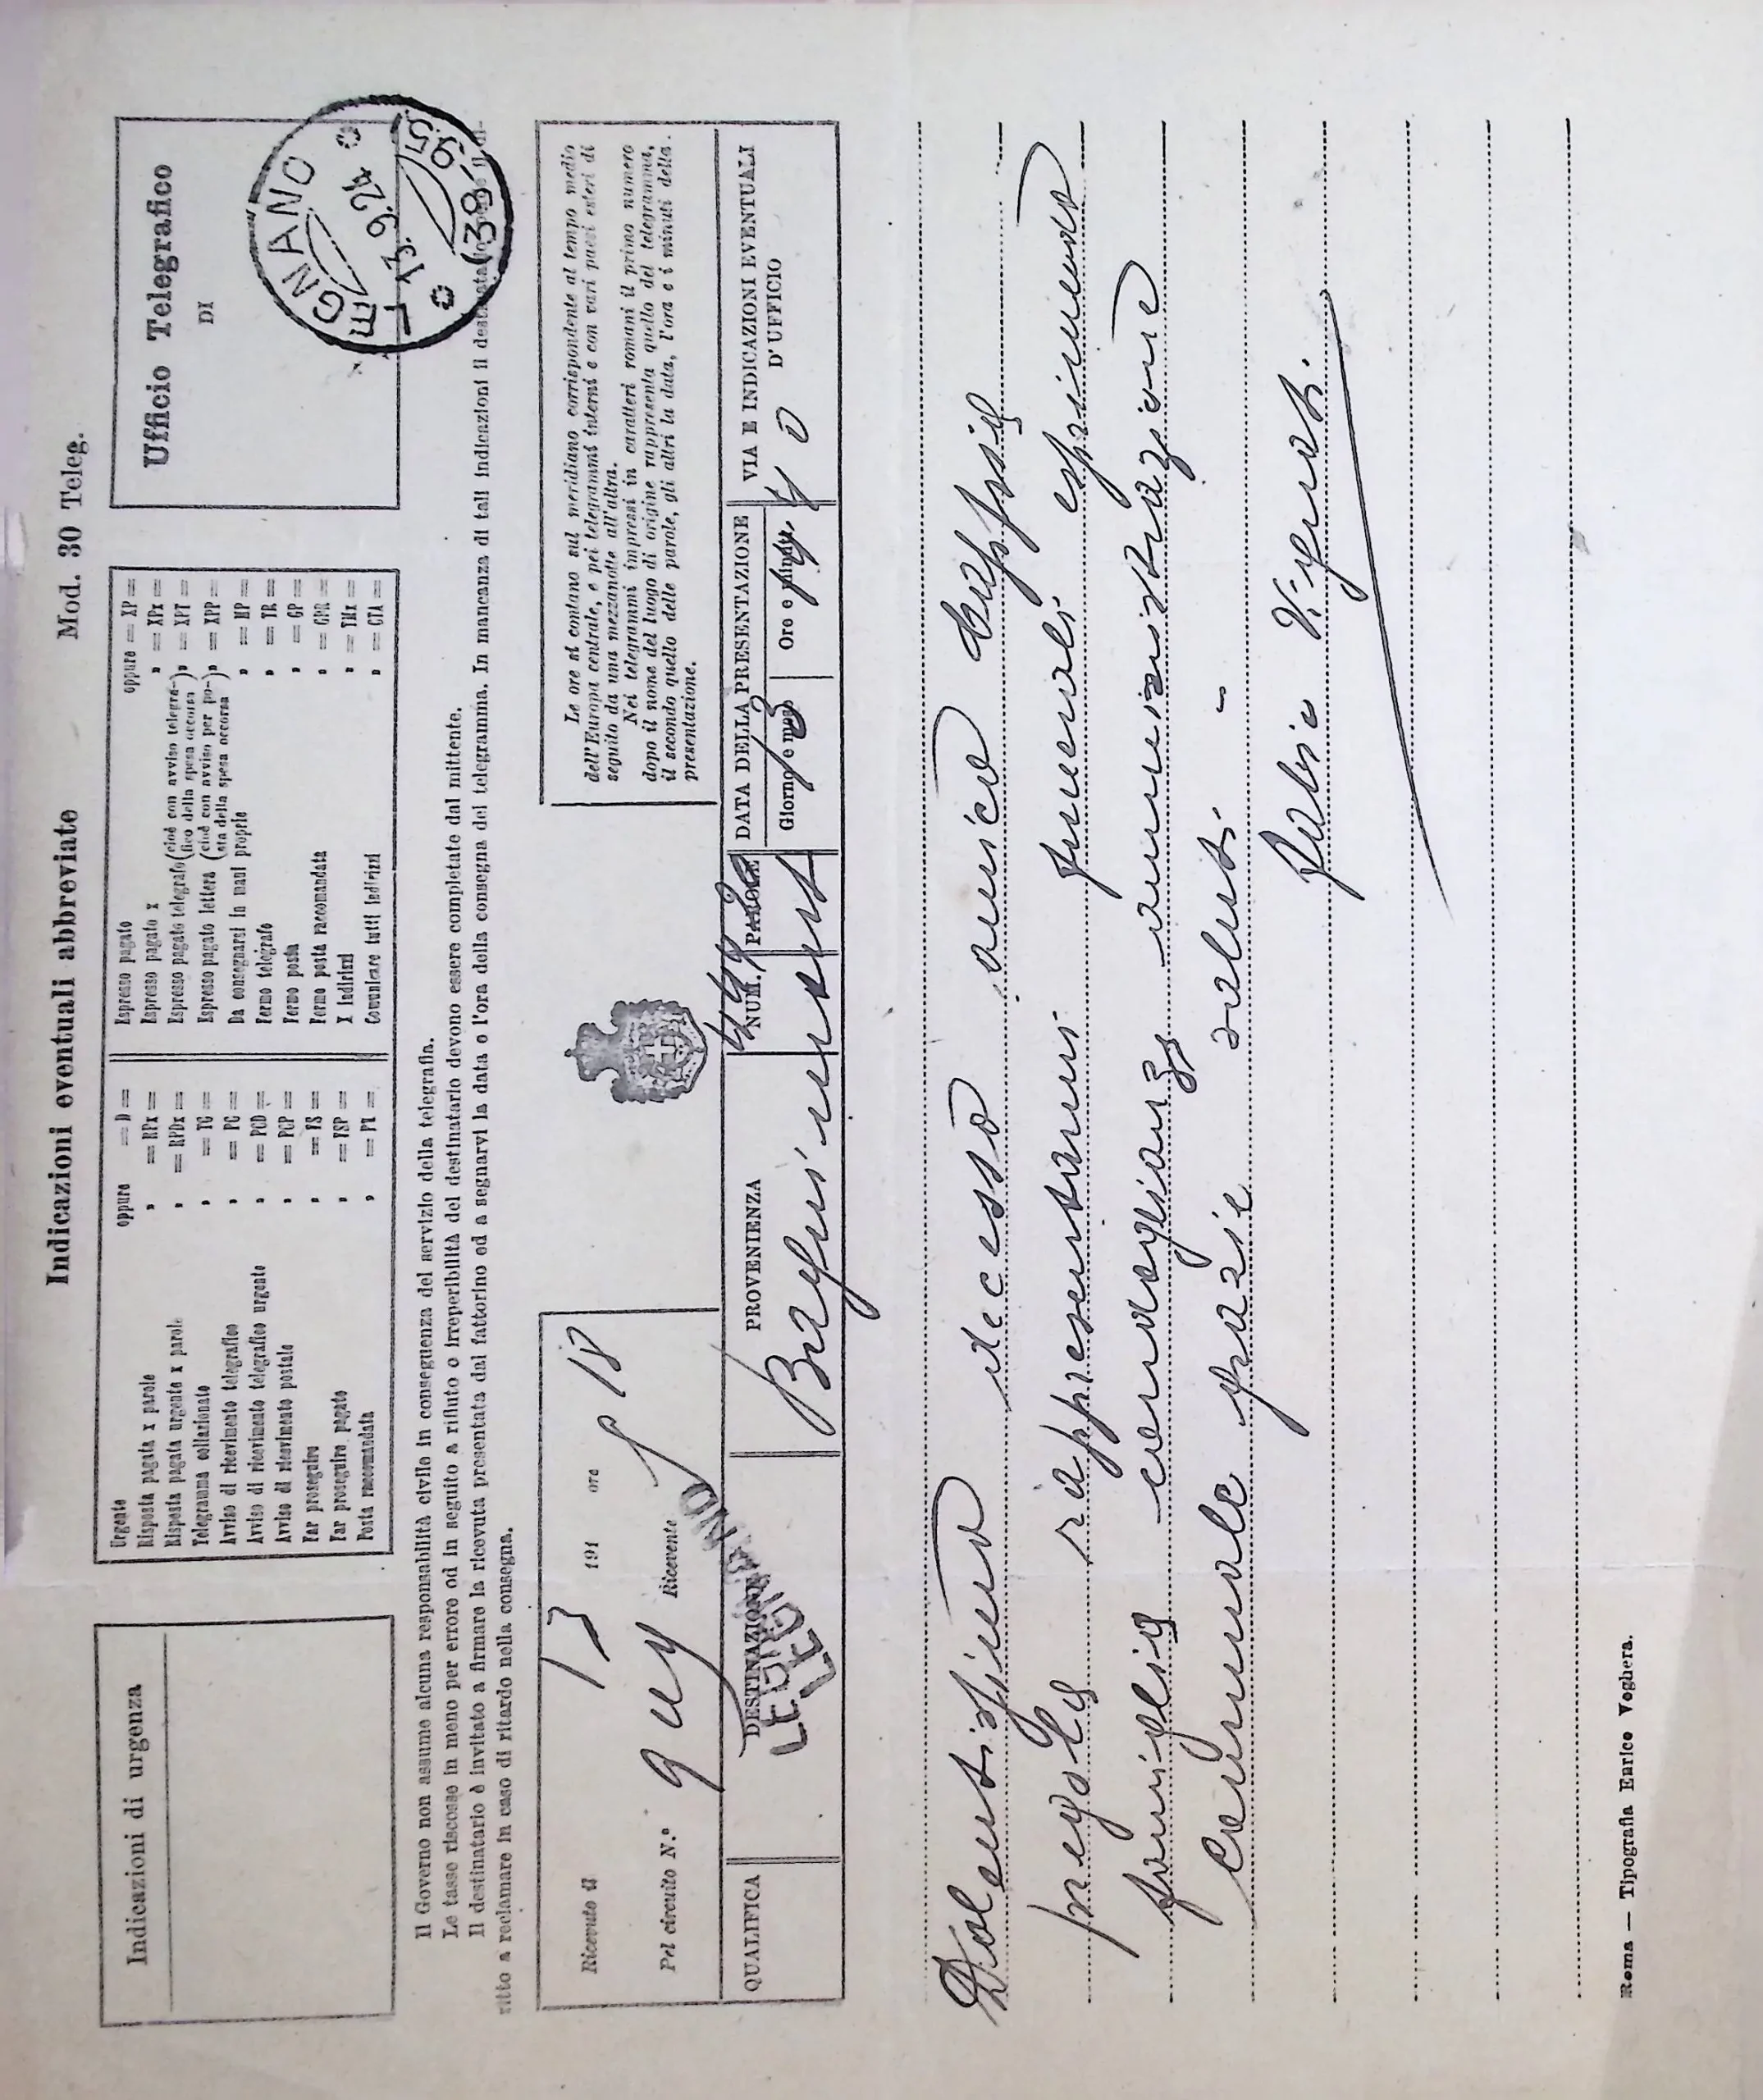 Indicazioni eventuali abbreviate
Mod. 30 Teleg.
Indicazioni di urgenza
Urgente oppure = D =
Risposta pagata x parole „ = RPx =
Risposta pagata urgente x parole „ = RPDx =
Telegramma collazionato „ = TC =
Avviso di ricevimento telegrafico „ = PC =
Avviso di ricevimento telegrafico urgente „ = PCD =
Avviso di ricevimento postale „ = PCP =
Far proseguire „ = FS =
Far proseguire pagato „ = FSP =
Posta raccomandata „ = PR =
Espresso pagato oppure = XP =
Espresso pagato x „ = XPx =
Espresso pagato telegrafo (cioè con avviso telegra-) „ = XPT =
fico della spesa occorsa
Espresso pagato lettera (cioè con avviso per po-) „ = XPP =
sta della spesa occorsa
Da consegnarsi in mani proprie „ = MP =
Fermo telegrafo „ = TR =
Fermo posta „ = GP =
Fermo posta raccomandata „ = GPR =
X indirizzi „ = TMx =
Comunicare tutti indirizzi „ = CTA =
Ufficio Telegrafico
DI
LEGNANO
13.9.24
(38-95)
Il Governo non assume alcuna responsabilità civile in conseguenza del servizio della telegrafia.
Le tasse riscosse in meno per errore od in seguito a rifiuto o irreperibilità del destinatario devono essere completate dal mittente.
Il destinatario è invitato a firmare la ricevuta presentata dal fattorino ed a segnarvi la data e l'ora della consegna del telegramma. In mancanza di tali indicazioni il destinatario
ritto a reclamare in caso di ritardo nella consegna.
Ricevuto il 13 191 ore 18
Pel circuito N.° Ricevente
Le ore si contano sul meridiano corrispondente al tempo medio
dell'Europa centrale, e pei telegrammi interni e con vari paesi esteri di
seguito da una mezzanotte all'altra.
Nei telegrammi impressi in caratteri romani il primo numero
dopo il nome del luogo di origine rappresenta quello del telegramma,
il secondo quello delle parole, gli altri la data, l'ora e i minuti della
presentazione.
QUALIFICA
DESTINAZIONE
PROVENIENZA
NUM.
PAROLE
DATA DELLA PRESENTAZIONE
Giorno e mese
Ore e minuti
VIA E INDICAZIONI EVENTUALI
D'UFFICIO
LEGNANO
13
Dolentissimo decesso amico
pregola rappresentarmi funerali esprimendo
famiglia amministrazione
comunale grazie saluti -
Fabio Vignati.
Roma — Tipografia Enrico Voghera.